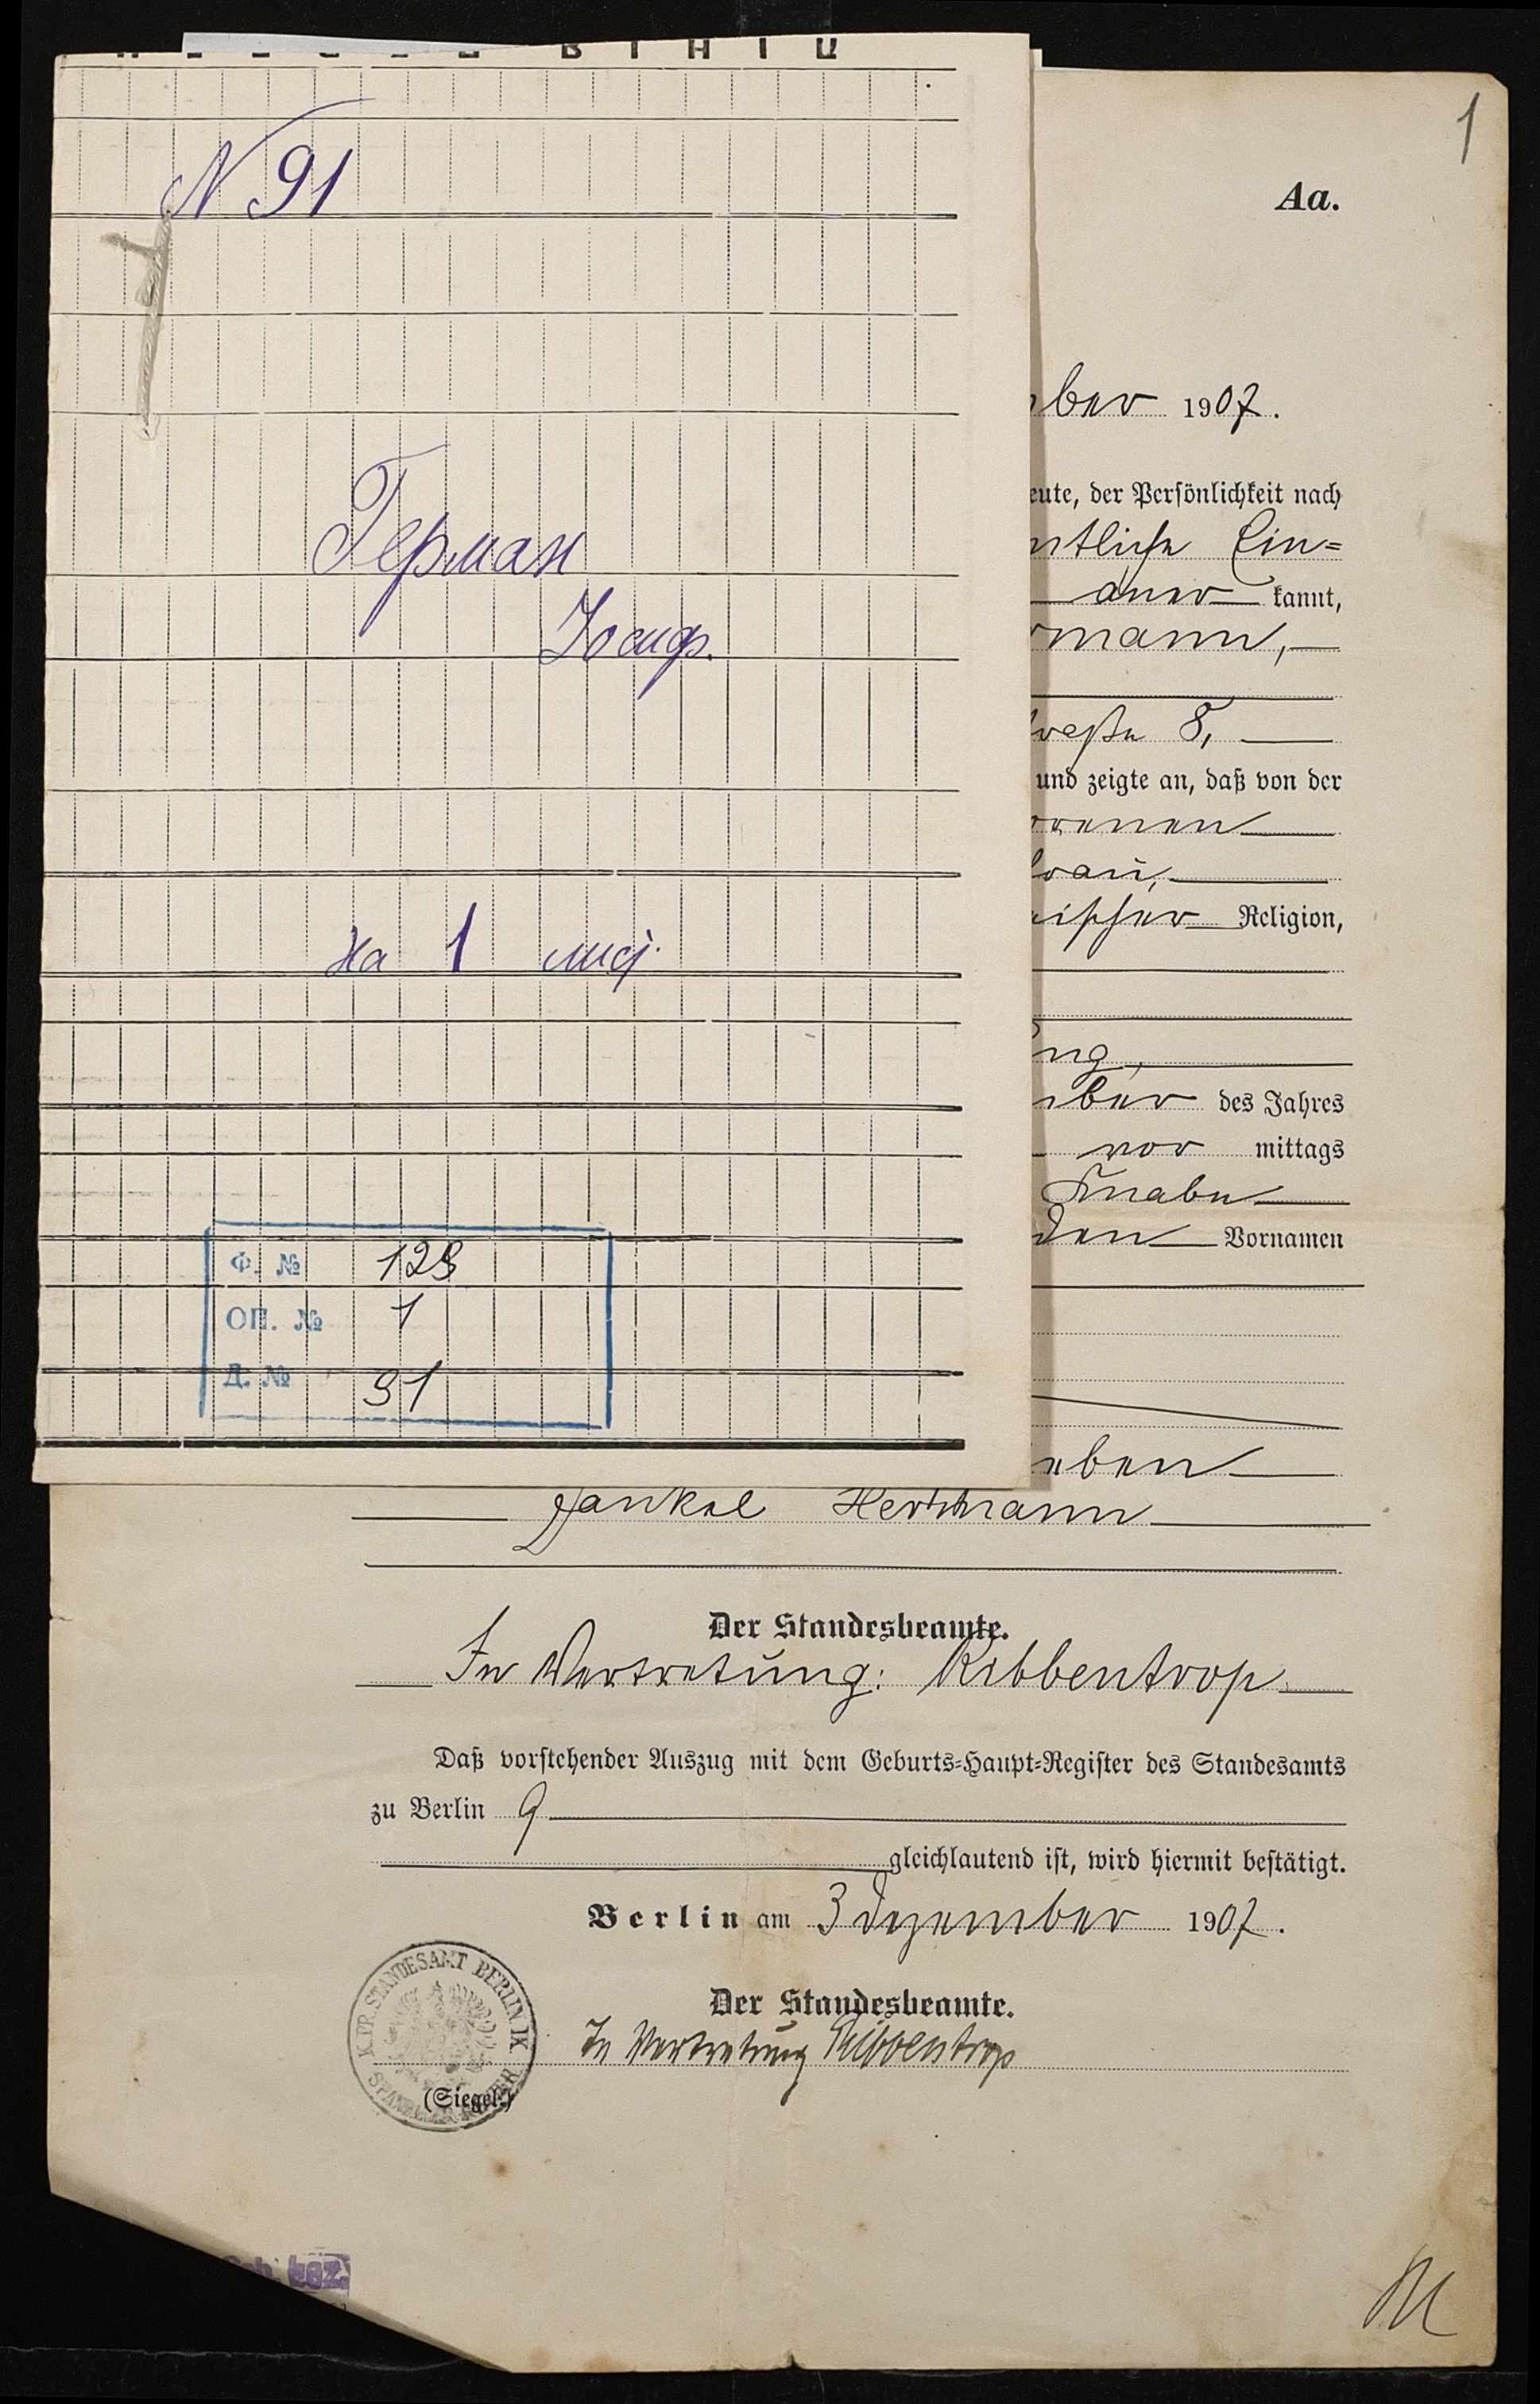 N 91
Герман
Иосиф.
На 1 лист
Ф. № 129
ОП. № 1
Д. № 91
1
Aa.
ber 1907.
eute, der Persönlichkeit nach
ntliche Ein=
aner kannt,
rmann,
traße 8,
und zeigte an, daß von der
orenen
frau,
aischer Religion,
ng,
mber des Jahres
vor mittags
Knabe
den Vornamen
ieben
Jankel Hertzmann
Der Standesbeamte.
In Vertretung: Ribbentrop
Daß vorstehender Auszug mit dem Geburts-Haupt-Register des Standesamts
zu Berlin 9
gleichlautend ist, wird hiermit bestätigt.
Berlin am 3 Dezember 1907.
Der Standesbeamte.
In Vertretung Ribbentrop
K. PR. STANDESAMT BERLIN IX
(Siegel.)